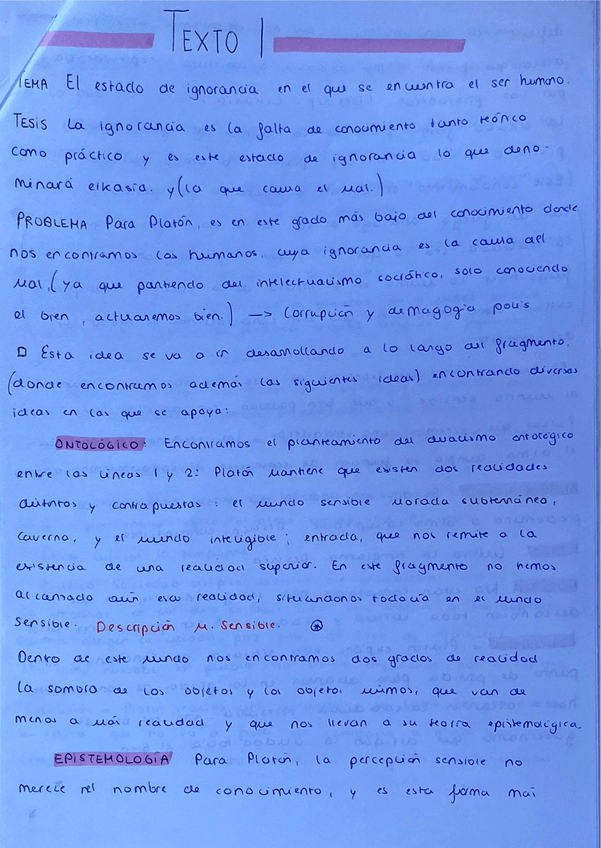 TEXTO 1
TEMA El estado de ignorancia en el que se encuentra el ser humano.
TESIS La ignorancia es la falta de conocimiento tanto teórico
como práctico y es este estado de ignorancia lo que deno-
minará eikasia. y (la que causa el mal.)
PROBLEMA Para Platón, es en este grado más bajo del conocimiento donde
nos encontramos los humanos, cuya ignorancia es la causa del
mal, (ya que partiendo del intelectualismo socrático, solo conociendo
el bien, actuaremos bien.) → Corrupción y demagogia polis
□ Esta idea se va a ir desarrollando a lo largo del fragmento.
(donde encontramos además las siguientes ideas) encontrando diversas
ideas en las que se apoya:
ONTOLÓGICO: Encontramos el planteamiento del dualismo ontológico
entre las líneas 1 y 2: Platón mantiene que existen dos realidades
distintos y contrapuestas: el mundo sensible morada subterránea,
caverna, y el mundo inteligible; entrada, que nos remite a la
existencia de una realidad superior. En este fragmento no hemos
alcanzado aún esa realidad, situandonos todavía en el mundo
sensible. Descripción M. Sensible.
Dentro de este mundo nos encontramos dos grados de realidad
la sombra de los objetos y los objetos mismos, que van de
menos a más realidad y que nos llevan a su teoría epistemológica.
EPISTEMOLOGÍA Para Platón, la percepción sensible no
merece el nombre de conocimiento, y es esta forma más